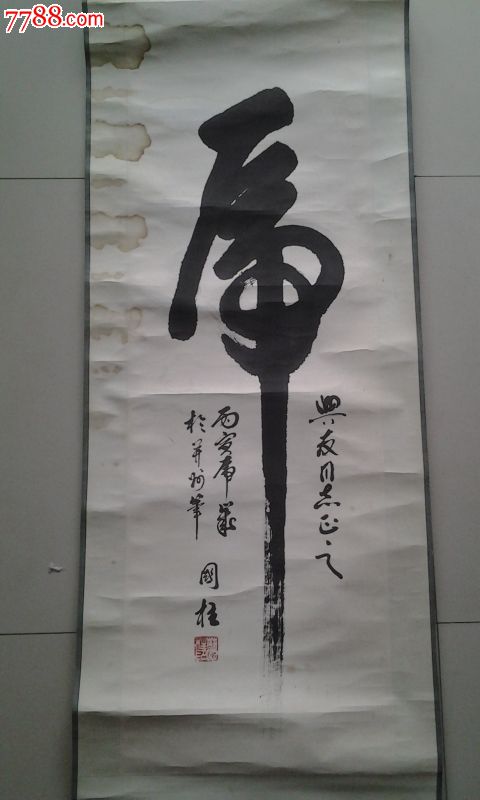 7788.com
虎
興友同志正之
丙寅虎歲
於并州筆
國柱